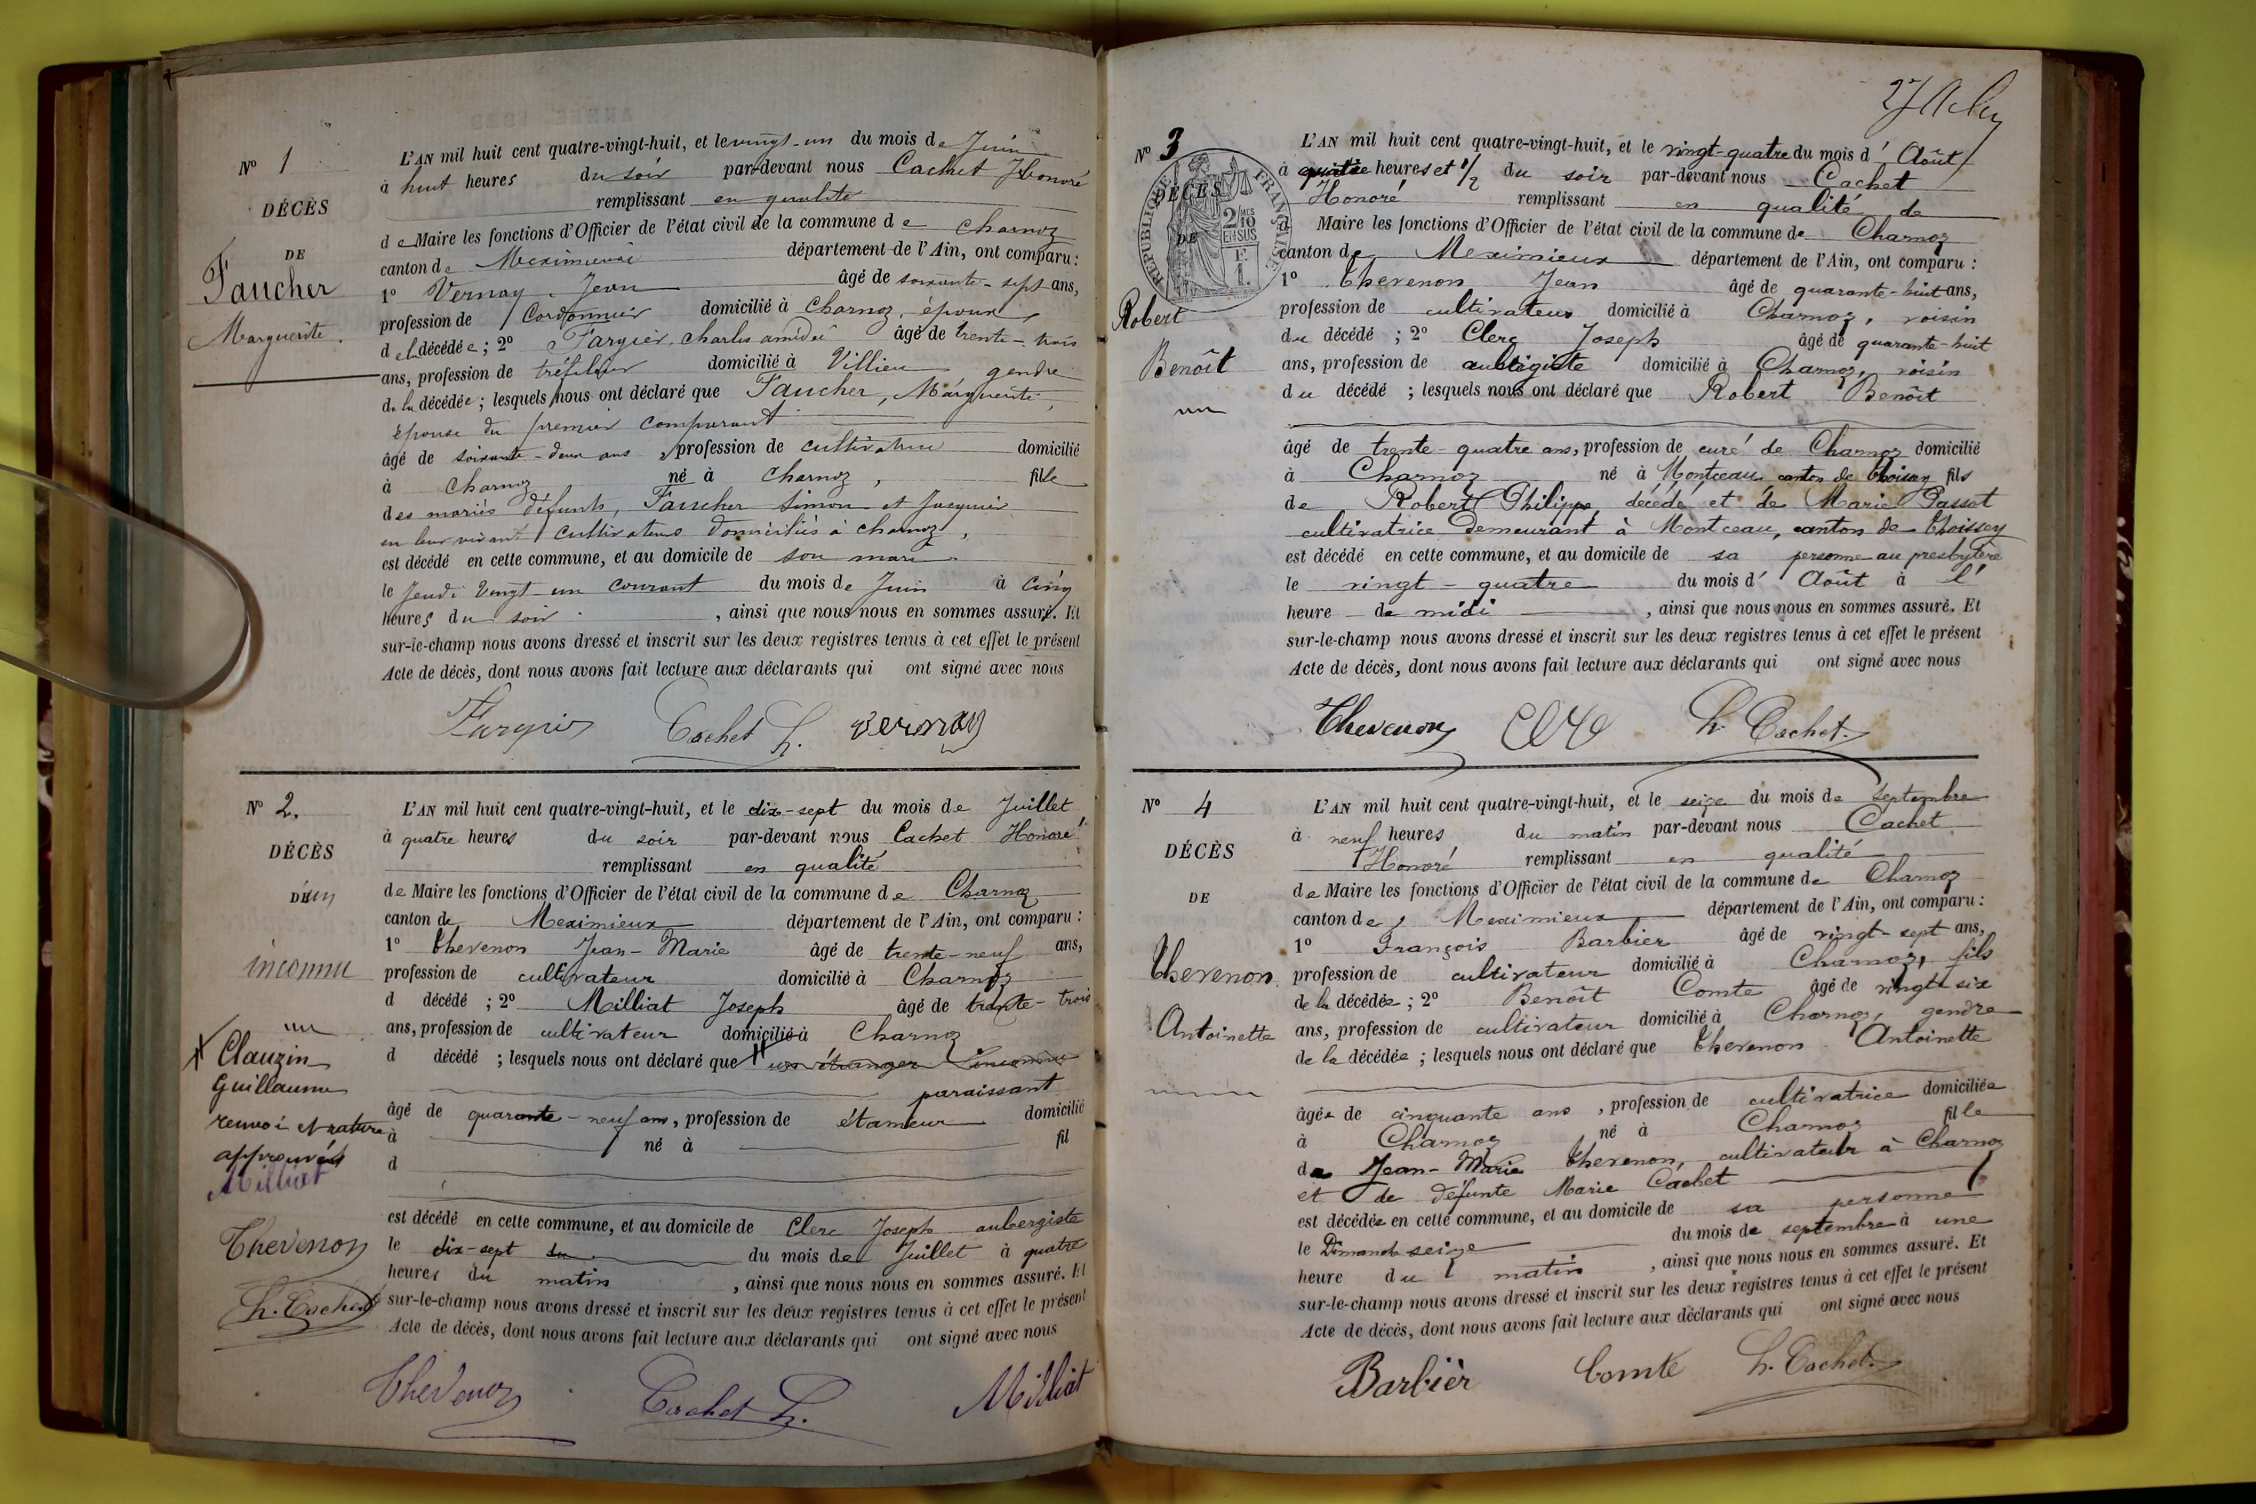 N° 1
DÉCÈS
DE
Faucher
Marguerite.
L'AN mil huit cent quatre-vingt-huit, et le vingt-un du mois de Juin
à huit heures du soir par-devant nous Cachet Honoré
remplissant en qualité
de Maire les fonctions d'Officier de l'état civil de la commune de Charnoz
canton de Meximieux département de l'Ain, ont comparu :
1° Vernay Jean âgé de soixante-sept ans,
profession de Cordonnier domicilié à Charnoz, époux
de la décédée ; 2° Fargier, charles amédée âgé de trente-trois
ans, profession de tréfileur domicilié à Villieu gendre
de la décédée ; lesquels nous ont déclaré que Faucher, Marguerite,
épouse du premier comparant
âgé de soixante-deux ans, profession de cultivatrice domicilié
à Charnoz né à Charnoz, fille
des mariés défunts, Faucher Simon et Jacquier
en leur vivant cultivateurs domiciliés à charnoz,
est décédé en cette commune, et au domicile de son mari
le Jeudi vingt-un courant du mois de Juin à cinq
heures du soir, ainsi que nous nous en sommes assuré. Et
sur-le-champ nous avons dressé et inscrit sur les deux registres tenus à cet effet le présent
Acte de décès, dont nous avons fait lecture aux déclarants qui ont signé avec nous
Fargier Cachet h. vernay
N° 2.
DÉCÈS
D'un
inconnu
Clauzin
Guillaume
renvoi et rature
approuvés
Milliat
Thevenon
h. Cachet
L'AN mil huit cent quatre-vingt-huit, et le dix-sept du mois de Juillet
à quatre heures du soir par-devant nous Cachet Honoré
remplissant en qualité
de Maire les fonctions d'Officier de l'état civil de la commune de Charnoz
canton de Meximieux département de l'Ain, ont comparu :
1° Thevenon Jean-Marie âgé de trente-neuf ans,
profession de cultivateur domicilié à Charnoz
d décédé ; 2° Milliat Joseph âgé de trente-trois
ans, profession de cultivateur domicilié à Charnoz
d décédé ; lesquels nous ont déclaré que un étranger inconnu
paraissant
âgé de quarante-neuf ans, profession de étameur domicilié
à né à fil
d
est décédé en cette commune, et au domicile de Clerc Joseph aubergiste
le dix-sept du du mois de Juillet à quatre
heures du matin, ainsi que nous nous en sommes assuré. Et
sur-le-champ nous avons dressé et inscrit sur les deux registres tenus à cet effet le présent
Acte de décès, dont nous avons fait lecture aux déclarants qui ont signé avec nous
Thevenon Cachet h. Milliat
N° 3
DÉCÈS
DE
RÉPUBLIQUE FRANÇAISE
2/10
EN SUS
1 F.
Robert
Benoît
L'AN mil huit cent quatre-vingt-huit, et le vingt-quatre du mois d'Août
à quatre heures et 1/2 du soir par-devant nous Cachet
Honoré remplissant en qualité de
d Maire les fonctions d'Officier de l'état civil de la commune de Charnoz
canton de Meximieux département de l'Ain, ont comparu :
1° Thevenon Jean âgé de quarante-huit ans,
profession de cultivateur domicilié à Charnoz, voisin
du décédé ; 2° Clerc Joseph âgé de quarante-huit
ans, profession de aubergiste domicilié à Charnoz, voisin
du décédé ; lesquels nous ont déclaré que Robert Benoît
âgé de trente-quatre ans, profession de curé de Charnoz domicilié
à Charnoz né à Montceau canton de Thoissey fils
de Robert Philippe décédé et de Marie Passot
cultivatrice demeurant à Montceau, canton de Thoissey
est décédé en cette commune, et au domicile de sa personne au presbytère
le vingt-quatre du mois d'Août à l'
heure de midi, ainsi que nous nous en sommes assuré. Et
sur-le-champ nous avons dressé et inscrit sur les deux registres tenus à cet effet le présent
Acte de décès, dont nous avons fait lecture aux déclarants qui ont signé avec nous
Thevenon Clerc h. Cachet
N° 4
DÉCÈS
DE
Thevenon
Antoinette
L'AN mil huit cent quatre-vingt-huit, et le seize du mois de Septembre
à neuf heures du matin par-devant nous Cachet
Honoré remplissant en qualité
de Maire les fonctions d'Officier de l'état civil de la commune de Charnoz
canton de Meximieux département de l'Ain, ont comparu :
1° François Barbier âgé de vingt-sept ans,
profession de cultivateur domicilié à Charnoz, fils
de la décédée ; 2° Benoît Comte âgé de vingt six
ans, profession de cultivateur domicilié à Charnoz, gendre
de la décédée ; lesquels nous ont déclaré que Thevenon Antoinette
âgée de cinquante ans, profession de cultivatrice domiciliée
à Charnoz né à Charnoz fille
de Jean-Marie Thevenon, cultivateur à Charnoz
et de défunte Marie Cachet
est décédée en cette commune, et au domicile de sa personne
le Dimanche seize du mois de septembre à une
heure du matin, ainsi que nous nous en sommes assuré. Et
sur-le-champ nous avons dressé et inscrit sur les deux registres tenus à cet effet le présent
Acte de décès, dont nous avons fait lecture aux déclarants qui ont signé avec nous
Barbièr Comte h. Cachet